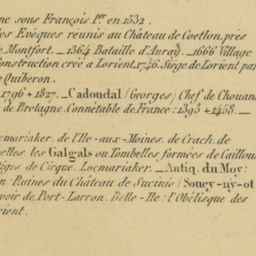 ne sous François I.er en 1532.
les Evêques reunis au Château de Coetlon, près
Montfort. _ 1364 Bataille d'Auray. _ 1666 Village
onstruction créé à Lorient. 1746. Siège de Lorient par
Quiberon.
1796 + 1827. _ Cadoudal (Georges) Chef de Chouans
de Bretagne. Connétable de France: 1393 + 1458. _
cmariaker. de l'Ile-aux-Moines. de Crach. de
elles. les Galgals ou Tombelles, formées de Cailloux
tiges de Cirque. Locmariaker. _ Antiq. du Moy:
n Ruines du Château de Sucinio (Soucy-ny-ot
voir de Port-Larron. Belle-Ile: l'Obélisque des
rient.